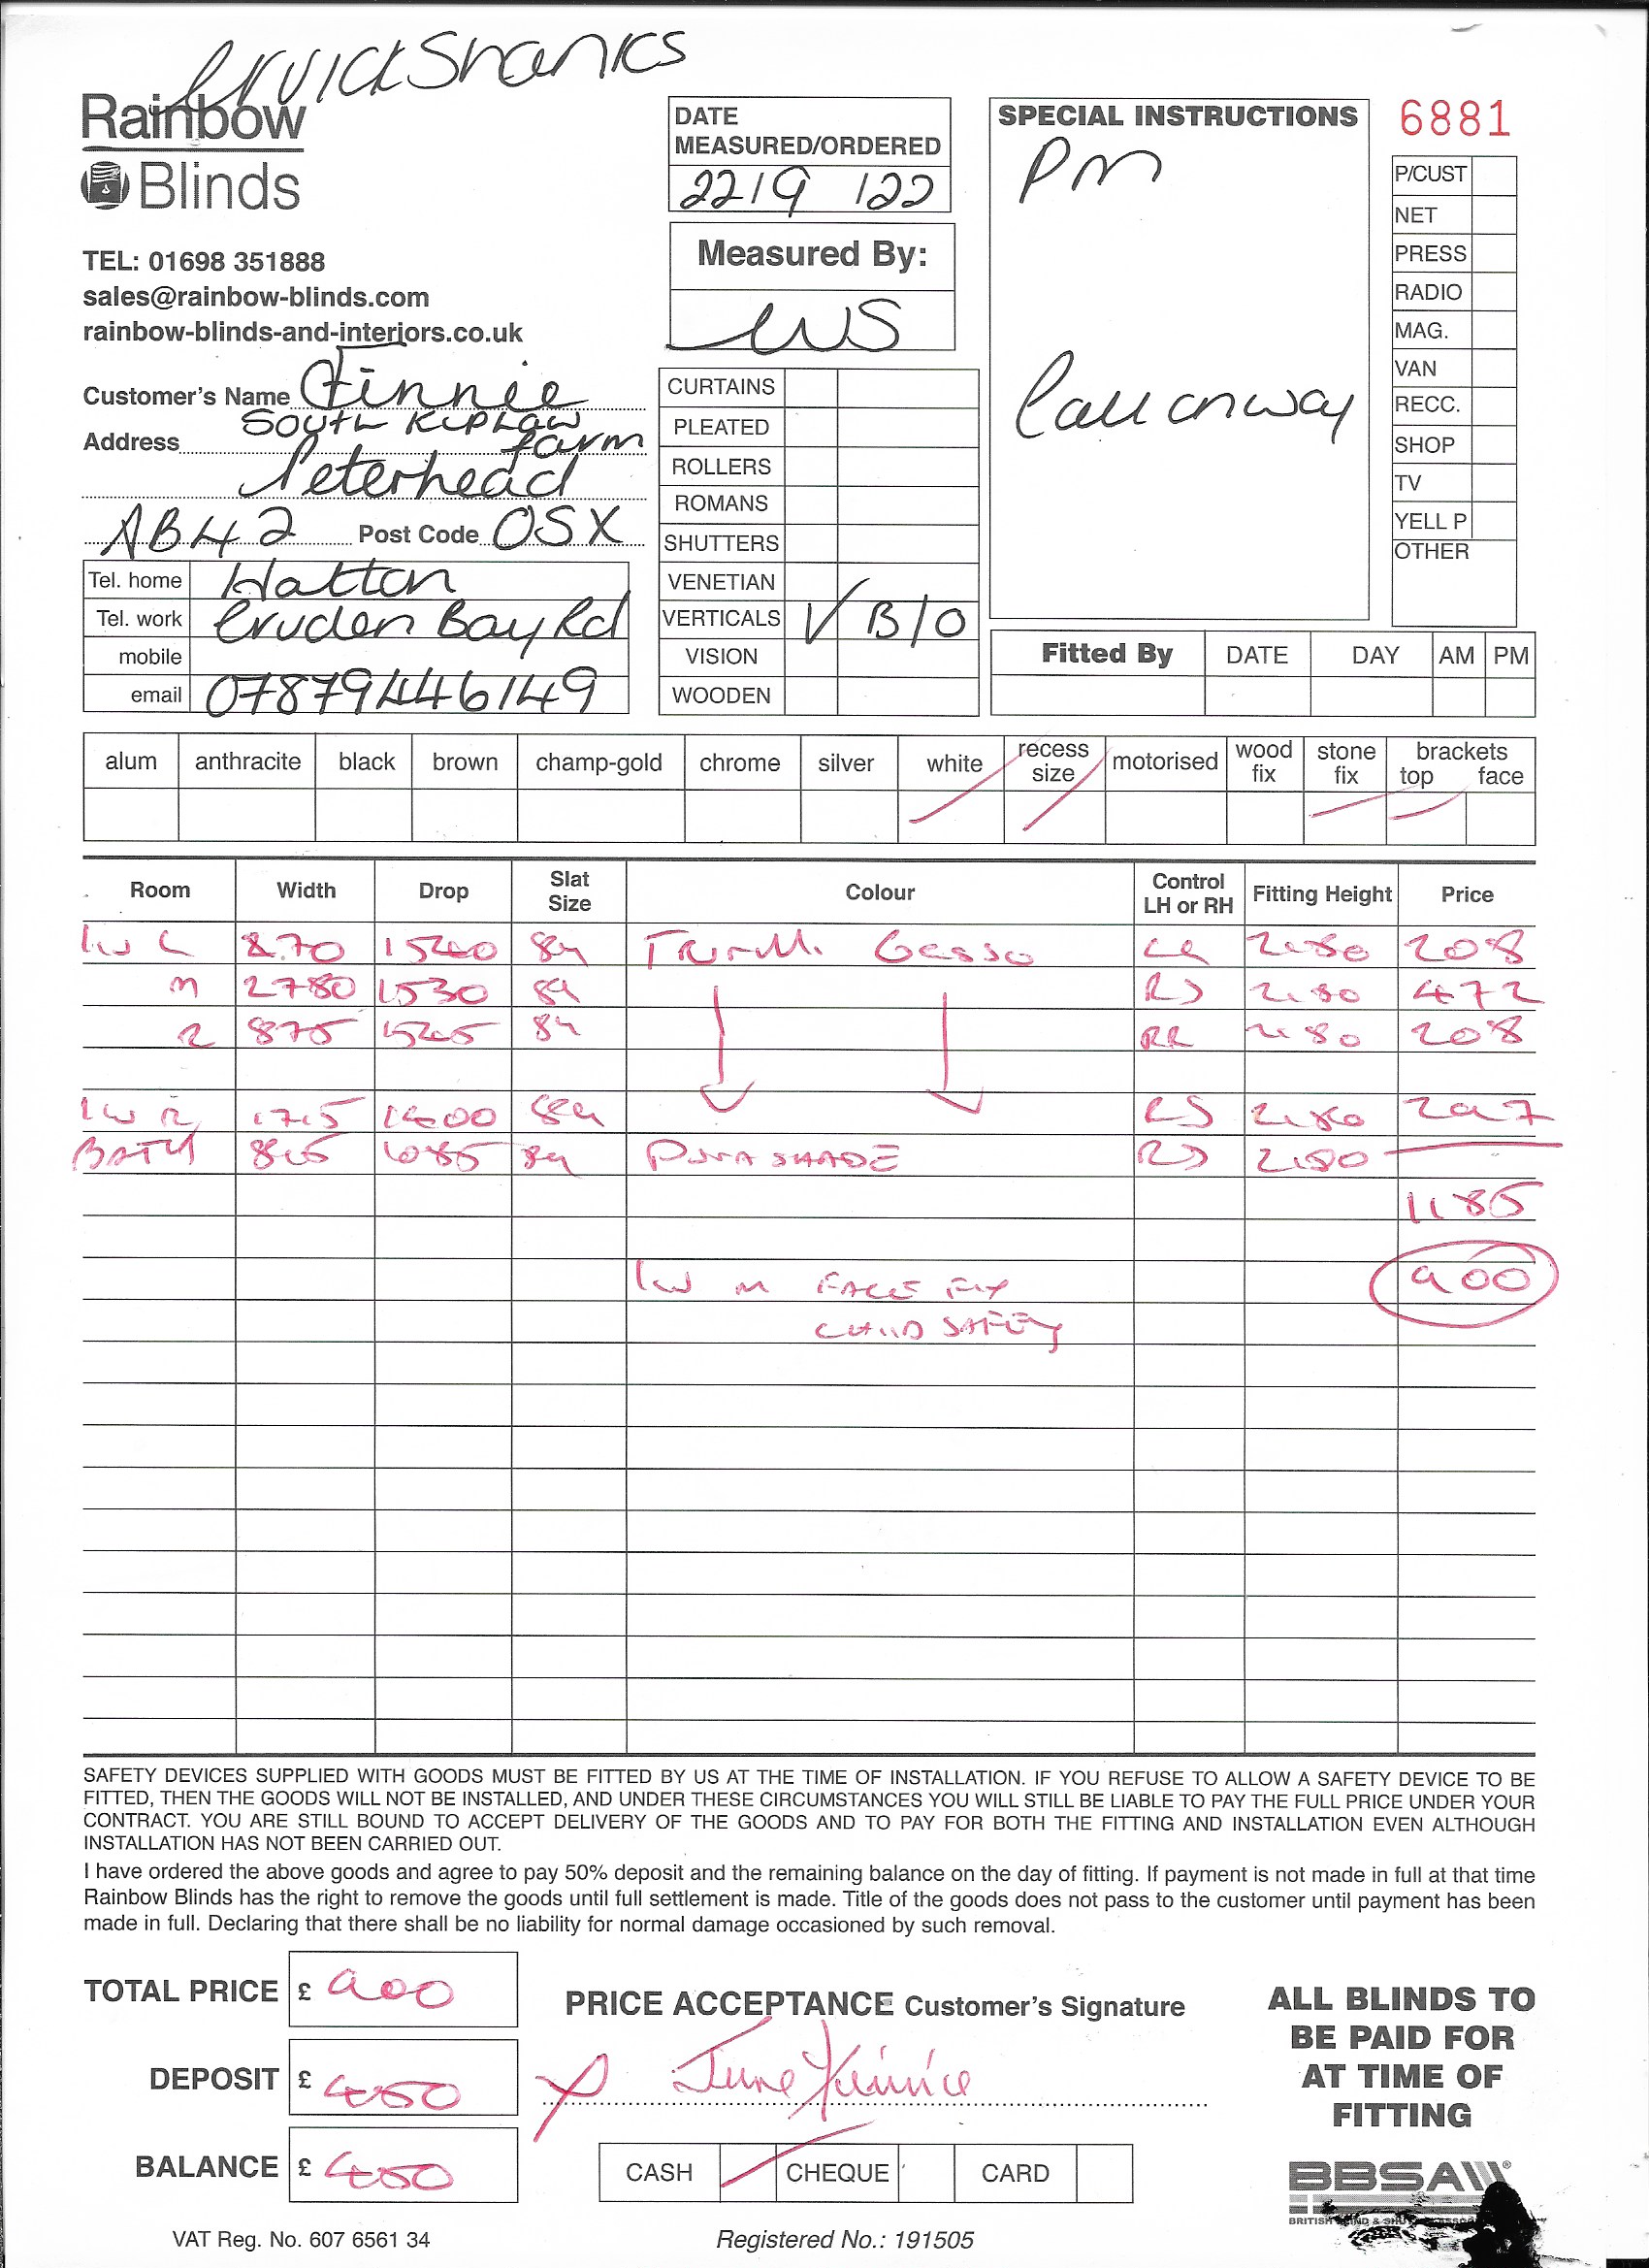 CruickShanks
Rainbow
Blinds
TEL: 01698 351888
sales@rainbow-blinds.com
rainbow-blinds-and-interiors.co.uk
Customer's Name Finnie
Address South Kiplaw
farm
Peterhead
AB42 Post Code 0SX
Tel. home Hatton
Tel. work Cruden Bay Rd
mobile
email 07879446149
DATE
MEASURED/ORDERED
22/9/22
Measured By:
WS
CURTAINS
PLEATED
ROLLERS
ROMANS
SHUTTERS
VENETIAN
VERTICALS ✓ B/O
VISION
WOODEN
SPECIAL INSTRUCTIONS
PM
Call onway
6881
P/CUST
NET
PRESS
RADIO
MAG.
VAN
RECC.
SHOP
TV
YELL P
OTHER
Fitted By DATE DAY AM PM
alum anthracite black brown champ-gold chrome silver white recess size motorised wood fix stone fix brackets top face
Room Width Drop Slat Size Colour Control LH or RH Fitting Height Price
IW L 870 1520 89 Gesso 2180 208
M 2780 1530 89 2180 472
R 875 1525 89 RR 2180 208
IW R 1715 89 2180 297
BATH 89 2180
1185
IW M FACE FIX 900
CHILD SAFETY
SAFETY DEVICES SUPPLIED WITH GOODS MUST BE FITTED BY US AT THE TIME OF INSTALLATION. IF YOU REFUSE TO ALLOW A SAFETY DEVICE TO BE
FITTED, THEN THE GOODS WILL NOT BE INSTALLED, AND UNDER THESE CIRCUMSTANCES YOU WILL STILL BE LIABLE TO PAY THE FULL PRICE UNDER YOUR
CONTRACT. YOU ARE STILL BOUND TO ACCEPT DELIVERY OF THE GOODS AND TO PAY FOR BOTH THE FITTING AND INSTALLATION EVEN ALTHOUGH
INSTALLATION HAS NOT BEEN CARRIED OUT.
I have ordered the above goods and agree to pay 50% deposit and the remaining balance on the day of fitting. If payment is not made in full at that time
Rainbow Blinds has the right to remove the goods until full settlement is made. Title of the goods does not pass to the customer until payment has been
made in full. Declaring that there shall be no liability for normal damage occasioned by such removal.
TOTAL PRICE £ 900
DEPOSIT £ 450
BALANCE £ 450
PRICE ACCEPTANCE Customer's Signature
X June Finnie
CASH CHEQUE CARD
ALL BLINDS TO
BE PAID FOR
AT TIME OF
FITTING
BBSA
VAT Reg. No. 607 6561 34
Registered No.: 191505